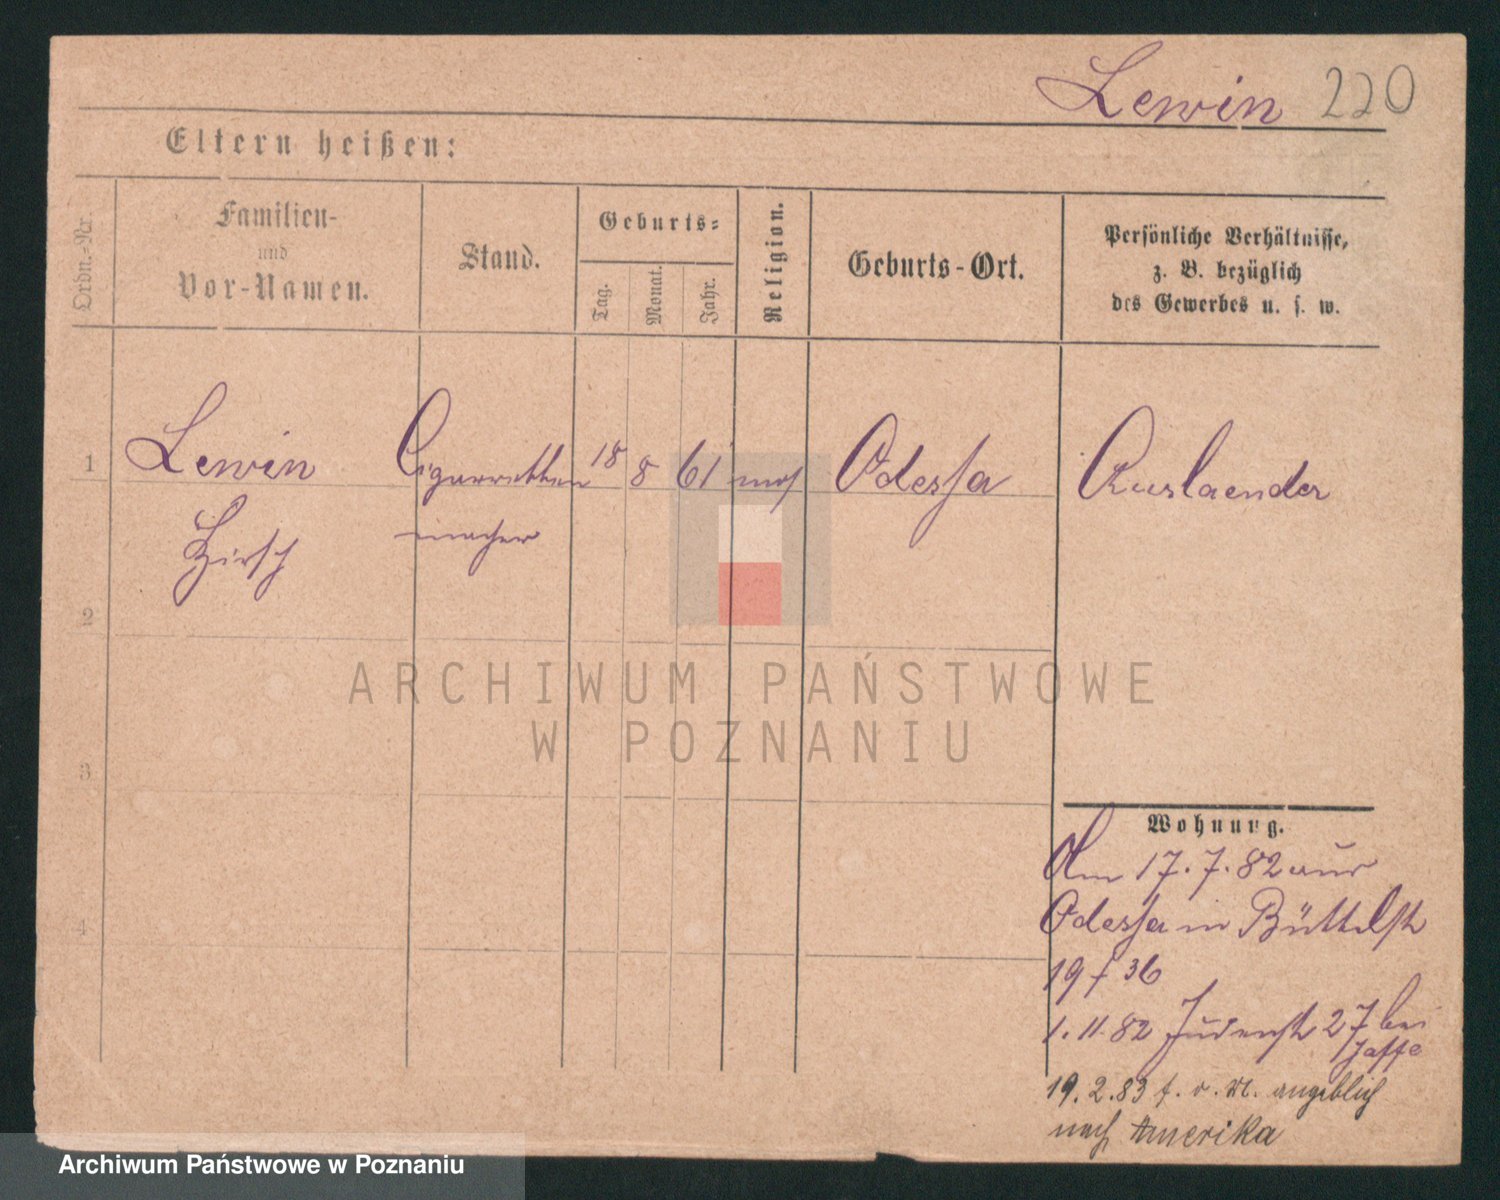 Lewin 220
Eltern heißen:
Ordn.-Nr.
Familien-
und
Vor-Namen.
Stand.
Geburts-
Tag.
Monat.
Jahr.
Religion.
Geburts-Ort.
Persönliche Verhältnisse,
z. B. bezüglich
des Gewerbes u. s. w.
1 Lewin Cigarretten 18 8 61 mos Odessa Auslaender
Hirsch macher
2
3
4
ARCHIWUM PAŃSTWOWE
W POZNANIU
Wohnung.
Am 17. 7. 82 aus
Odessa in Büttelst
19 f 36
1. 11. 82 Judenst 27 bei
Jaffe
19. 2. 83 f. v. M. angeblich
nach Amerika
Archiwum Państwowe w Poznaniu